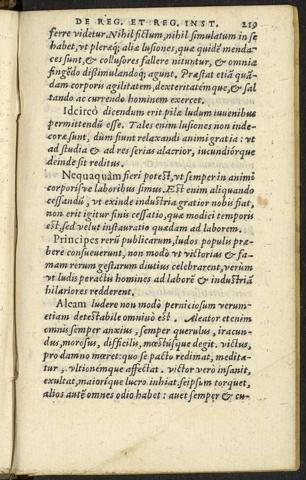 DE REG. ET REG. INST. 219
ferre videtur. Nihil fictum, nihil simulatum in se
habet, vt pleræq; aliæ lusiones, quæ quidē menda-
ces sunt, & collusores fallere nituntur, & omnia
fingēdo dißimulandoq; agunt. Præstat etiā quā-
dam corporis agilitatem, dexteritatēmque, & sal
tando ac currendo hominem exercet.
Idcirco dicendum erit pilæ ludum iuuenibus
permittendū esse. Tales enim lusiones non inde-
coræ sunt, dùm sunt relaxandi animi gratia: vt
ad studia & ad res serias alacrior, iucundiórque
deinde sit reditus.
Nequaquàm fieri potest, vt semper in animi
corporísve laboribus simus. Est enim aliquando
cessandū, vt exinde industria gratior nobis fiat,
non erit igitur finis cessatio, quæ modici temporis
est, sed velut instauratio quædam ad laborem.
Principes rerū publicarum, ludos populis præ-
bere consueuerunt, non modò vt victorias & fa-
mam rerum gestarum diutius celebrarent, verùm
vt ludis peractis homines ad laborē & industriā
hilariores redderent.
Aleam ludere non modò perniciosum verum-
etiam detestabile omnino est. Aleator etenim
omnis semper anxius, semper querulus, iracun-
dus, morosus, difficilis, mœstúsque degit. victus,
pro damno mœret: quo se pacto redimat, medita-
tur, vltionémque affectat. victor verò insanit,
exultat, maiorísque lucro inhiat. seipsum torquet,
alios autē omnes odio habet: auet semper & cu-